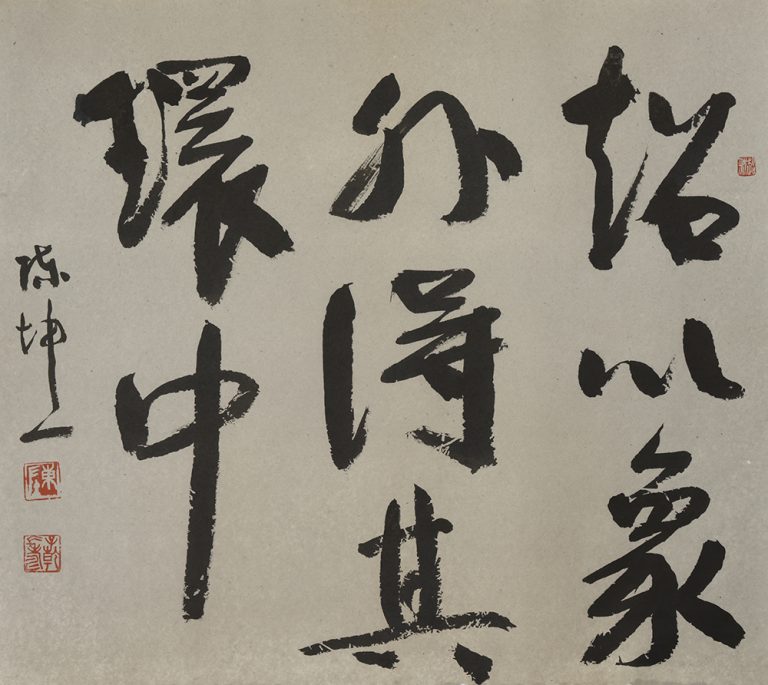 超以象
外得其
環中
陳坤一